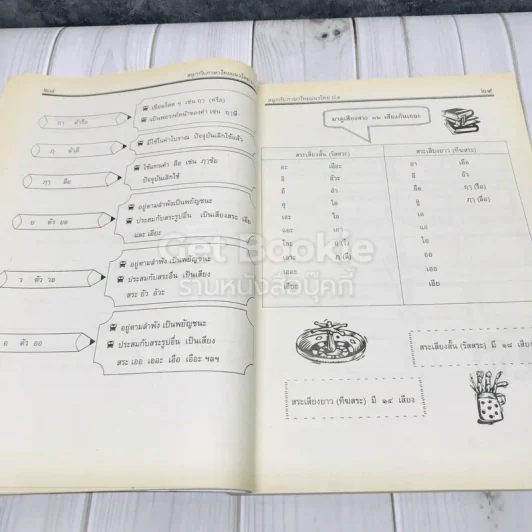 ๒๘
สนุกกับภาษาไทยแนวใหม่
ฤๅ ตัวรือ
เขียนโดด ๆ เช่น ฤๅ (หรือ)
ฦ ตัวลึ
มีใช้ในคำโบราณ ปัจจุบันเลิกใช้แล้ว
ฦๅ ลือ
ใช้แทนคำ ลือ เช่น ฦๅชัย
ปัจจุบันเลิกใช้
ย ตัว ยอ
อยู่ตามลำพังเป็นพยัญชนะ
ประสมกับสระรูปอื่น เป็นเสียงสระ เอีย
และ เอียะ
ว ตัว วอ
อยู่ตามลำพัง เป็นพยัญชนะ
ประสมกับสระอื่น เป็นเสียง
สระ อัว อัวะ
อ ตัว ออ
อยู่ตามลำพัง เป็นพยัญชนะ
ประสมกับสระรูปอื่น เป็นเสียง
สระ เออ เออะ เอือ เอือะ ฯลฯ
สนุกกับภาษาไทยแนวใหม่ ป.๑
๒๙
มาดูเสียงสระ ๓๒ เสียงกันเถอะ
สระเสียงสั้น (รัสสระ)
สระเสียงยาว (ทีฆสระ)
อะ เอือะ
อา เอือ
อิ อัวะ
อี อัว
อึ อำ
อือ ฤๅ (รือ)
อุ ไอ
อู ฦๅ (ลือ)
เอะ ใอ
เอ
แอะ เอา
แอ
โอะ
โอ
เอาะ
ออ
เออะ
เออ
เอียะ
เอีย
สระเสียงสั้น (รัสสระ) มี ๑๘ เสียง
สระเสียงยาว (ทีฆสระ) มี ๑๔ เสียง
Get Bookie
ร้านหนังสือบุ๊คกี้